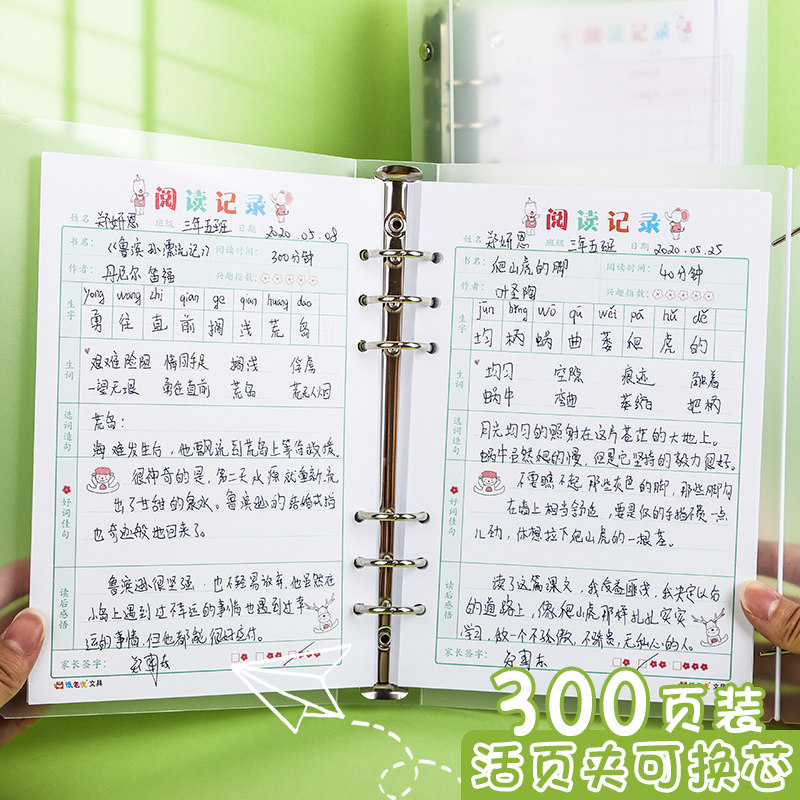 阅读记录
阅读记录
姓名 郑妍恩 班级 三年五班 日期 2020.05.08
书名: 《鲁滨孙漂流记》 阅读时间: 300分钟
作者: 丹尼尔 笛福 兴趣指数:
生字
yong wang zhi qian ge qian huang dao
勇 往 直 前 搁 浅 荒 岛
生词
艰难险阻 情同手足 搁浅 俘虏
一望无垠 勇往直前 荒岛 荒无人烟
选词造句
荒岛:
海难发生后,他飘流到荒岛上等待救援。
好词佳句
很神奇的是,第二天水源就重新流
出了甘甜的泉水。鲁滨逊的
也奇迹般地回来了。
读后感悟
鲁滨逊很坚强,也不轻易放弃,他虽然在
小岛上遇到过不幸运的事情也遇到过幸
运的事情,但他都能很好应付。
家长签字:
猿老虎文具
阅读记录
姓名 郑妍恩 班级 三年五班 日期 2020.05.25
书名: 爬山虎的脚 阅读时间: 40分钟
作者: 叶圣陶 兴趣指数:
生字
jūn bǐng wō qū wěi pá hǔ dě
均 柄 蜗 曲 萎 爬 虎 的
生词
均匀 空隙 痕迹 触着
蜗牛 弯曲 萎缩 把柄
选词造句
月光均匀的照射在这片苍茫的大地上。
蜗牛虽然爬的慢,但是它坚持的毅力很好。
好词佳句
不要瞧不起那些灰色的脚,那些脚勾
在墙上相当舒适,要是你的手指不费一点
儿劲,休想拉下爬山虎的一根茎。
读后感悟
读了这篇课文,我受益匪浅,我决定以后
的道路上,像爬山虎那样扎扎实实
学习,做一个不骄傲,不满贪,无私心的人。
家长签字:
猿老虎文具
300页装
活页夹可换芯